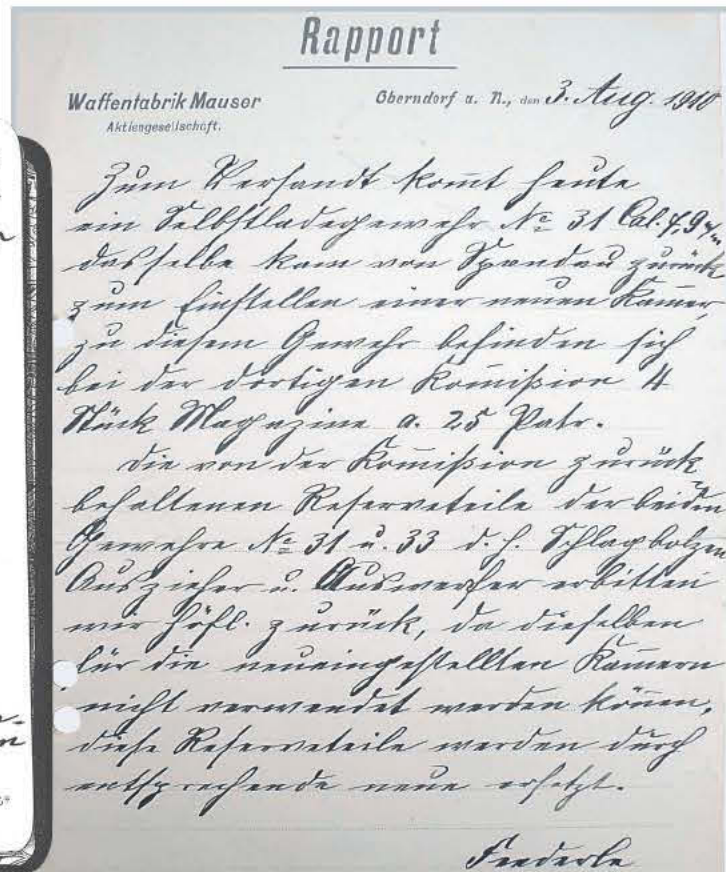 Rapport
Waffenfabrik Mauser
Aktiengesellschaft.
Oberndorf a. N., den 3. Aug. 1910
Zum Versandt komt heute
ein Selbstladegewehr No 31 Cal. 7,9 m/m
dasselbe kam von Spandau zurück
zum Einstellen einer neuen Kamer,
zu diesem Gewehr befinden sich
bei der dortigen Komißion 4
Stück Magazine a. 25 Patr.
Die von der Komißion zurück
behaltenen Reserveteile der beiden
Gewehre No 31 u. 33 d. h. Schlagbolzen
Auszieher u. Auswerfer erbitten
wir höfl. zurück, da dieselben
für die neueingestellten Kamern
nicht verwendet werden könen,
diese Reserveteile werden durch
entsprechende neue ersetzt.
Feederle